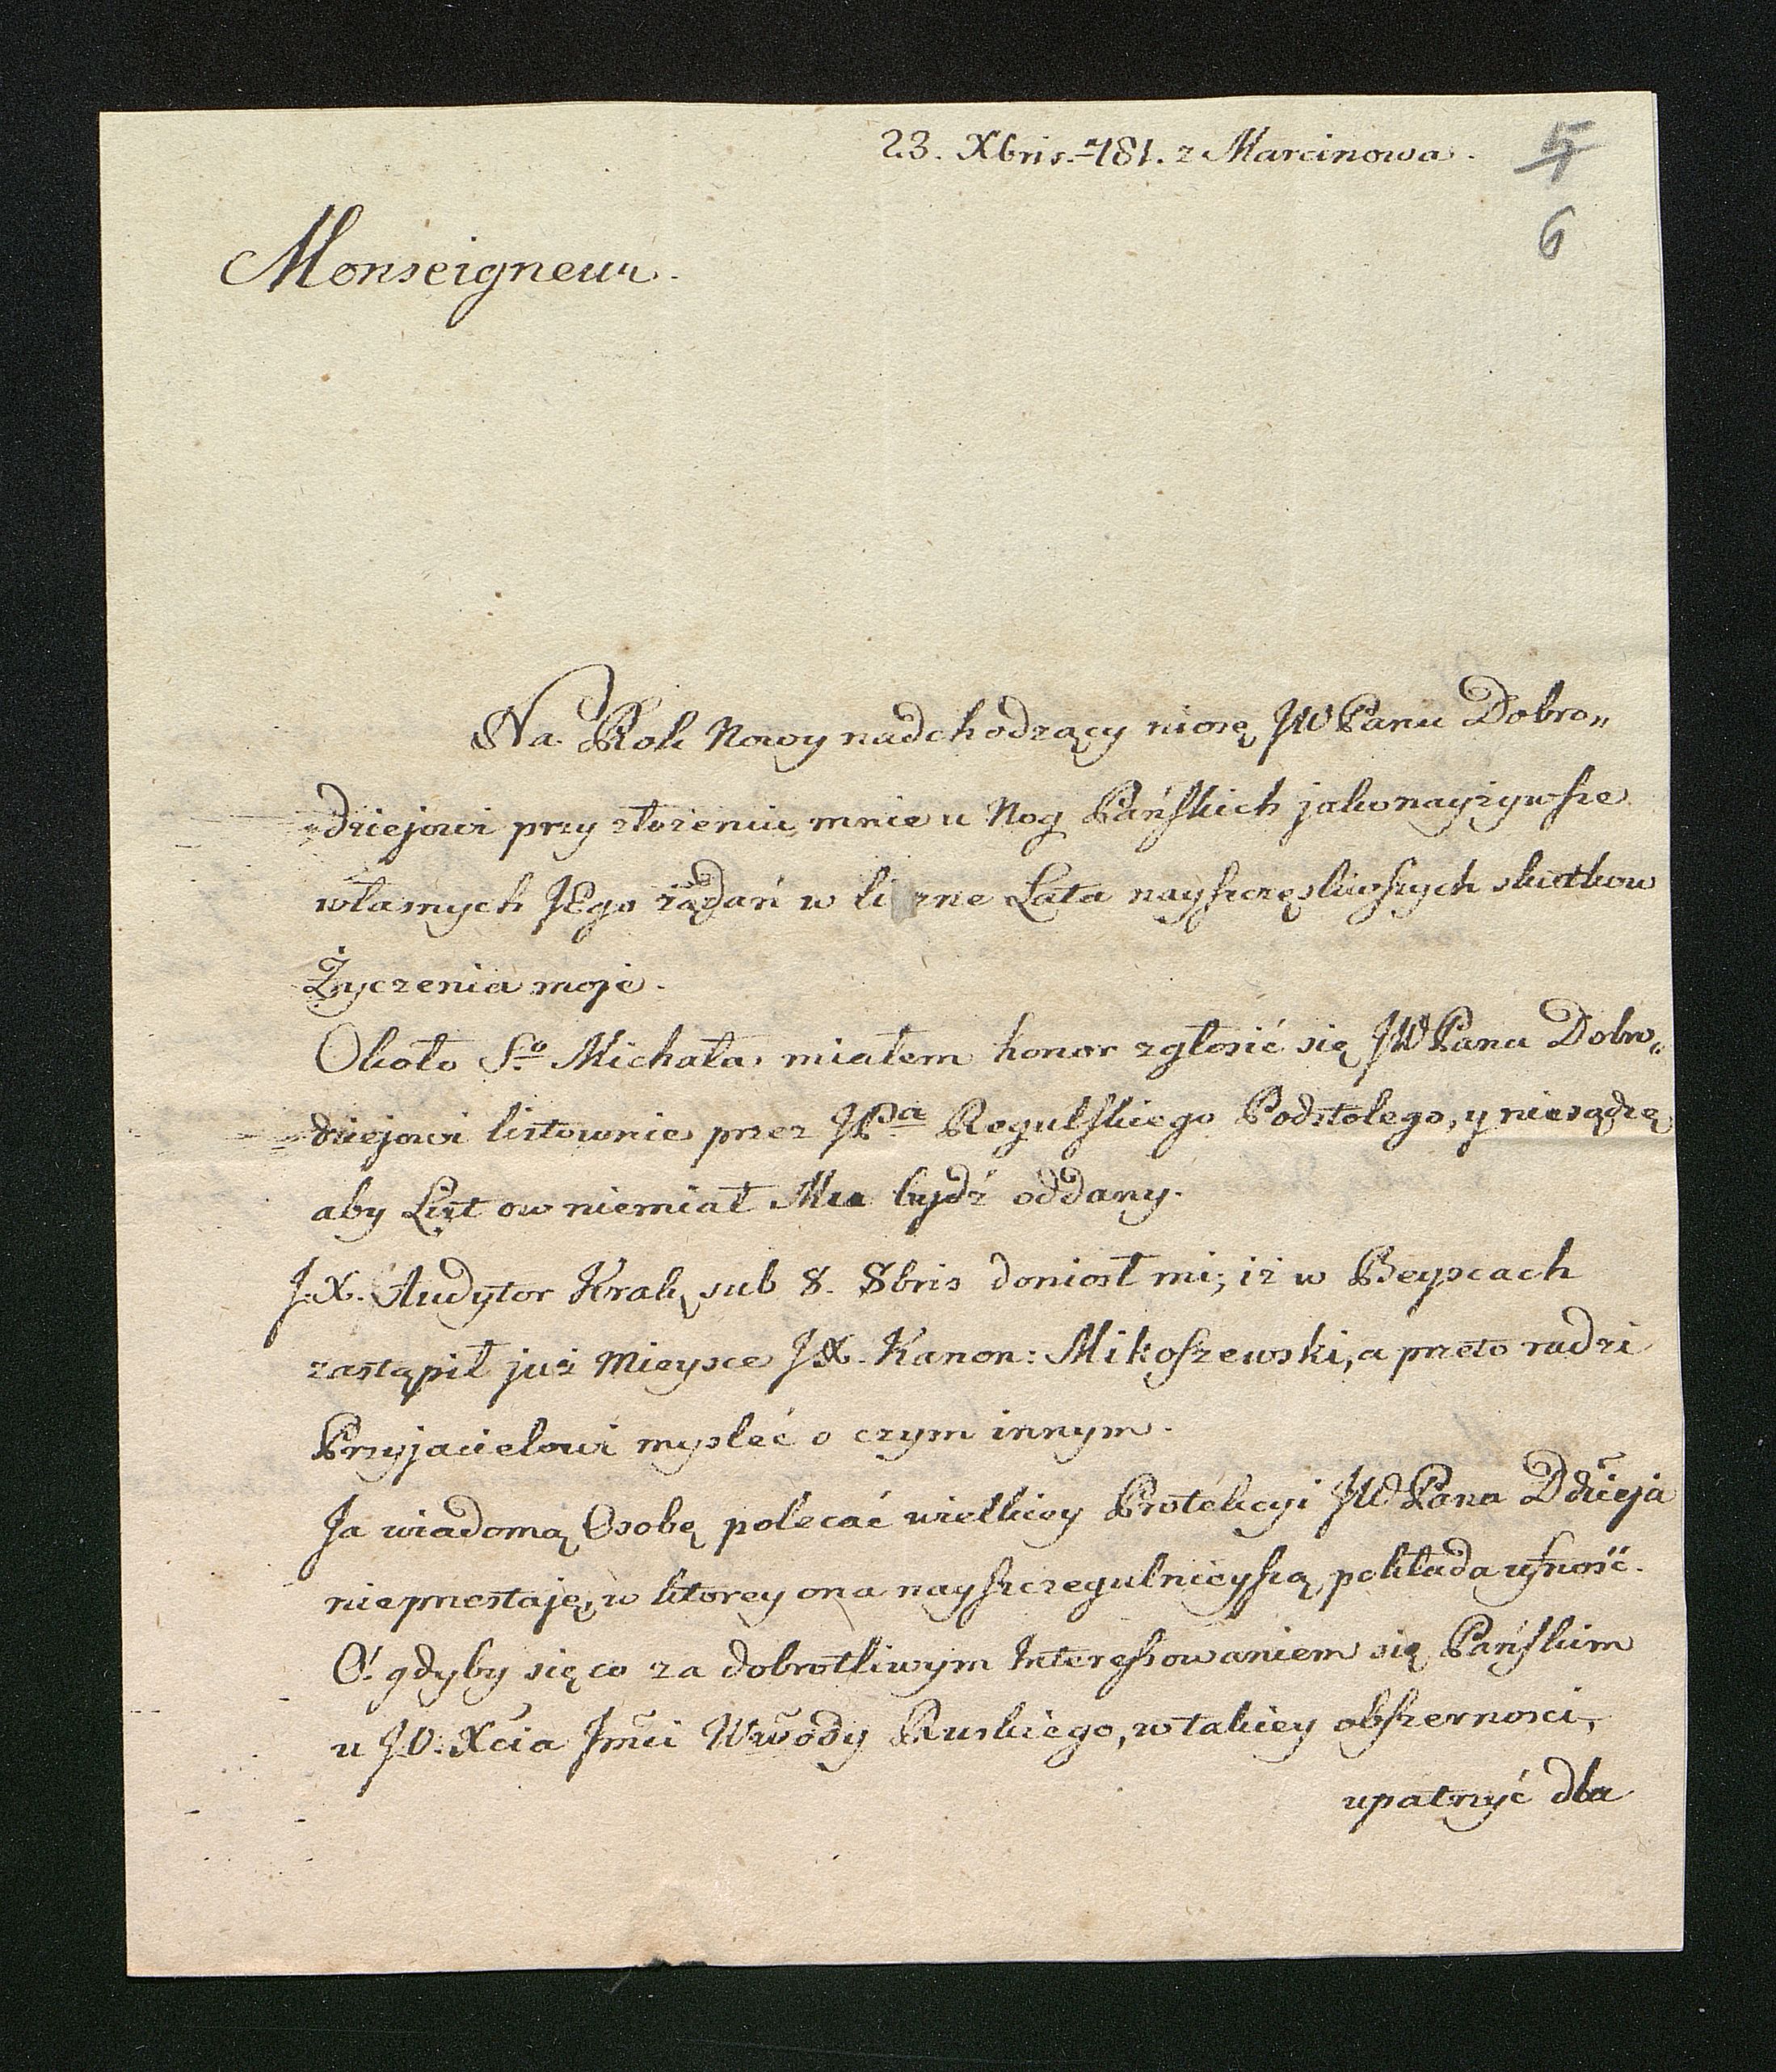 23. Xbris. 781. z Marcinowa.
5
6
Monseigneur.
Na Rok Nowy nadchodzący niosę JW Panu Dobro„
dziejowi przy złożeniu mnie u Nog Pańskich jakonayżywsze
własnych JEgo żądań w li zne Lata nayszczęsliwszych skutkow
Życzenia moje.
Około So Michała miałem honor zgłosić się JW Panu Dobro„
dziejowi listownie przez JPa Regulskiego Podstolego, y niesądzę
aby List ow niemiał Mu bydź oddany.
J.X. Audytor Krak sub 8. 8bris doniosł mi; iż w Beyscach
zastąpił już Mieysce JX. Kanon: Mikoszewski, a przeto radzi
Przyjacielowi mysleć o czym innym.
Ja wiadomą Osobę polecać wielkiey Protekcyi JW Pana Ddzieja
nieprzestaję, w ktorey ona nayszczegulnieyszą pokłada ufność.
O! gdyby się co za dobrotliwym Interessowaniem się Pańskim
u JO. Xcia Jmci Wwody Ruskiego, w takiey obszernosci,
upatrzyć dla